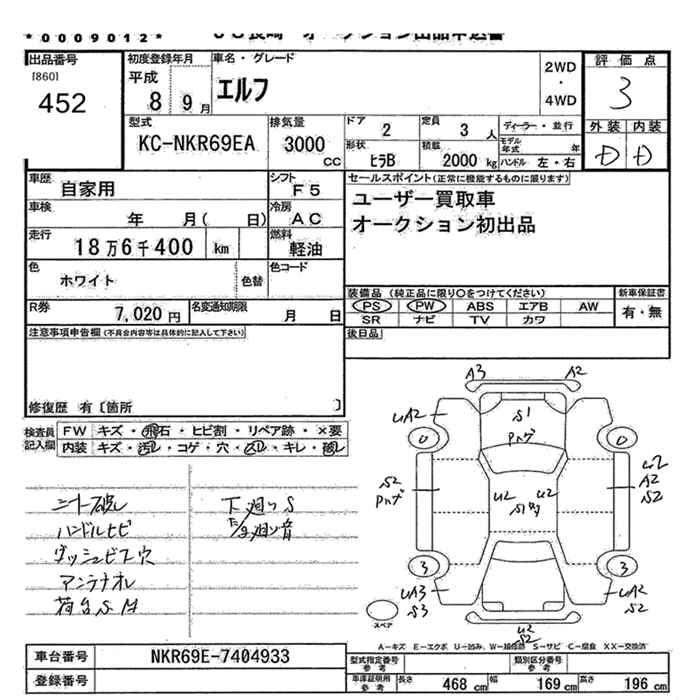 *0009012*
出品番号
[860]
452
初度登録年月
平成
8 9月
車名・グレード
エルフ
2WD
・
4WD
評価点
3
型式
KC-NKR69EA
排気量
3000
cc
ドア
2
定員
3 人
ディーラー・並行
外装 内装
D D
形状
ヒラB
積載
2000 kg
モデル年式 年
ハンドル 左・右
車歴
自家用
シフト
F5
セールスポイント(正常に機能するものに限ります)
ユーザー買取車
オークション初出品
車検
年 月( 日)
冷房
AC
走行
18万6千400 km
燃料
軽油
色
ホワイト
色替
色コード
装備品(純正品に限り〇をつけてください)
新車保証書
PS PW ABS エアB AW
有・無
SR ナビ TV カワ
R券
7,020 円
名変通知期限
月 日
後日品
注意事項申告欄(不具合内容等は具体的に記入して下さい)
修復歴 有〔箇所 〕
検査員記入欄
FW キズ・飛石・ヒビ割・リペア跡・×要
内装 キズ・汚レ・コゲ・穴・スレ・キレ・破レ
シート破レ
ハンドルヒビ
ダッシュビス穴
アンテナオレ
荷台S M
下廻りS
A3 A2
UA2
S1
Pハゲ
0 0
S2
Pハゲ
U2 U2
A2
S2
3 3
UA3
S3
UA2
S2
U2
S2
スペア
A-キズ E-エクボ U-凹み、W-補修跡 S-サビ C-腐食 XX-交換済
車台番号
NKR69E-7404933
登録番号
型式指定番号
参考
類別区分番号
参考
車庫証明用
参考
長さ 468 cm 幅 169 cm 高さ 196 cm